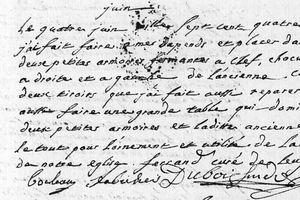 juin
Le quatre juin mille sept cent quatre
j'ai fait faire a mes depends et placer da
deux petites armoires fermantes a clef, chacu
a droite et a gauche de l'ancienne
deux tiroirs que j'ai fait aussi reparer
aussi faire une grande table qui dom
deux petites armoires et ladite ancienne
le tout pour l'ornement et utilité de la
de notre eglise. curé de
Dubois